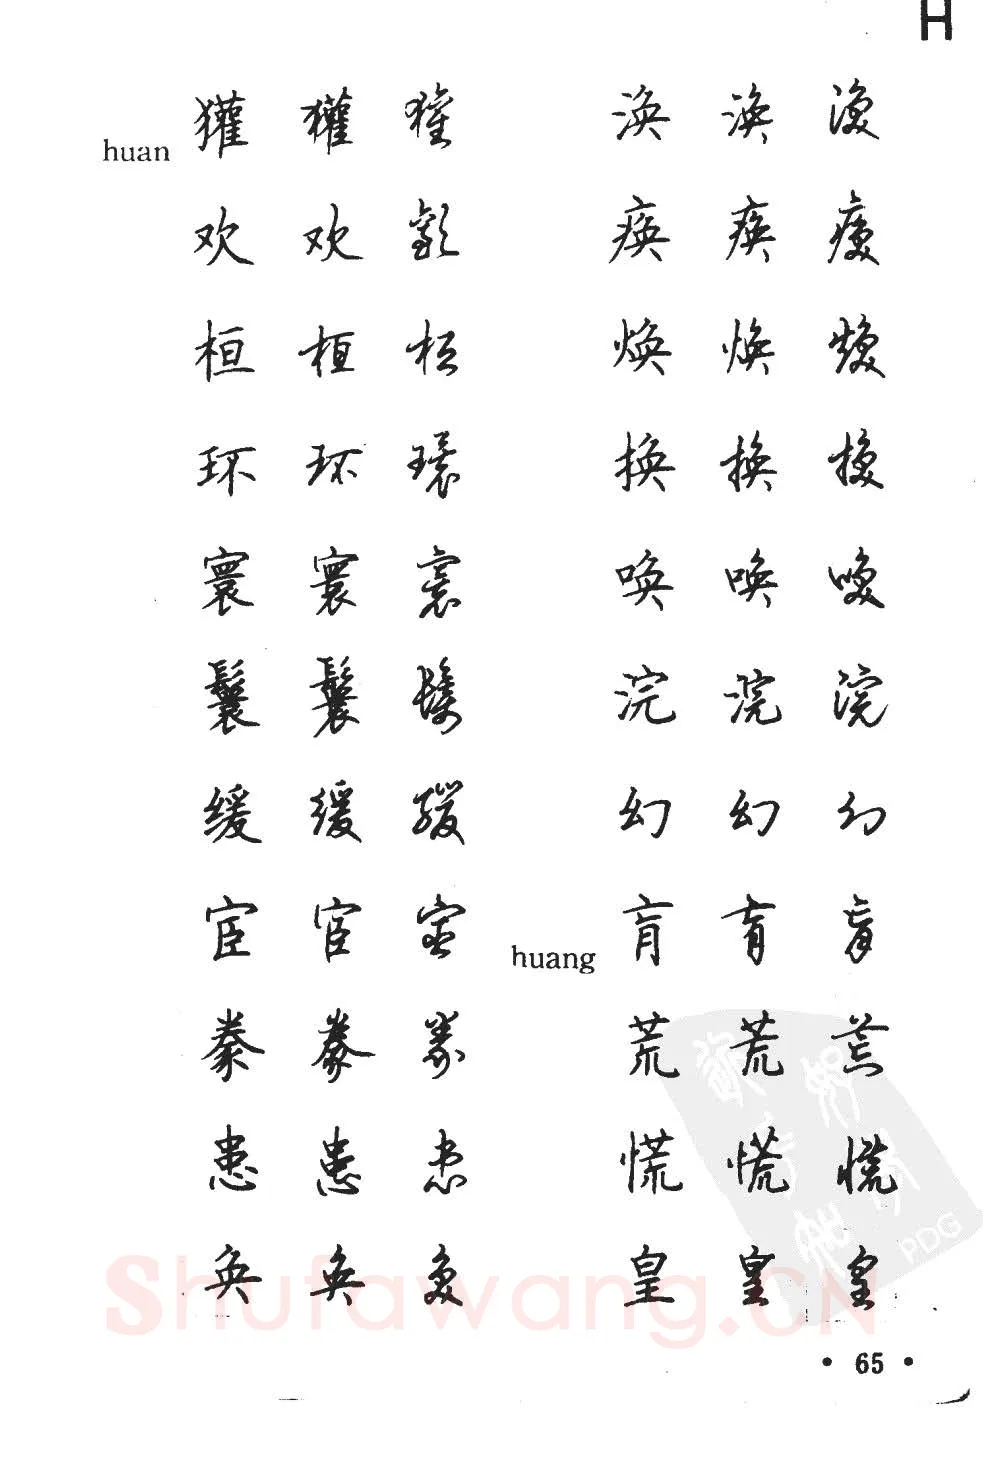 H
huan
獾 獾 獾
欢 欢 歡
桓 桓 桓
环 环 環
寰 寰 寰
鬟 鬟 鬟
缓 缓 緩
宦 宦 宦
豢 豢 豢
患 患 患
奂 奂 奂
涣 涣 涣
痪 痪 痪
焕 焕 焕
换 换 换
唤 唤 唤
浣 浣 浣
幻 幻 幻
huang
肓 肓 肓
荒 荒 荒
慌 慌 慌
皇 皇 皇
PDG
Shufawang.CN
• 65 •